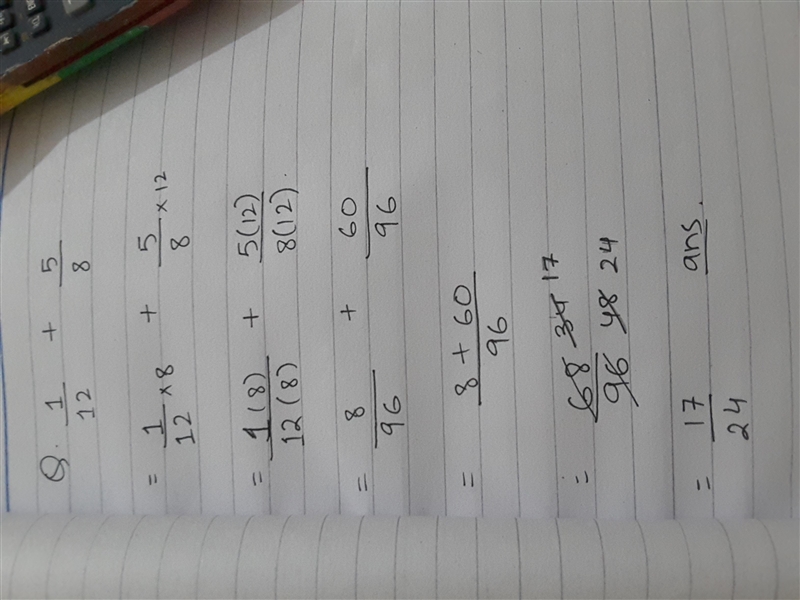 Q. 1/12 + 5/8
= 1/12 × 8 + 5/8 × 12
= 1(8)/12(8) + 5(12)/8(12).
= 8/96 + 60/96
= 8 + 60/96
= 68 34 17/96 48 24
= 17/24 ans.